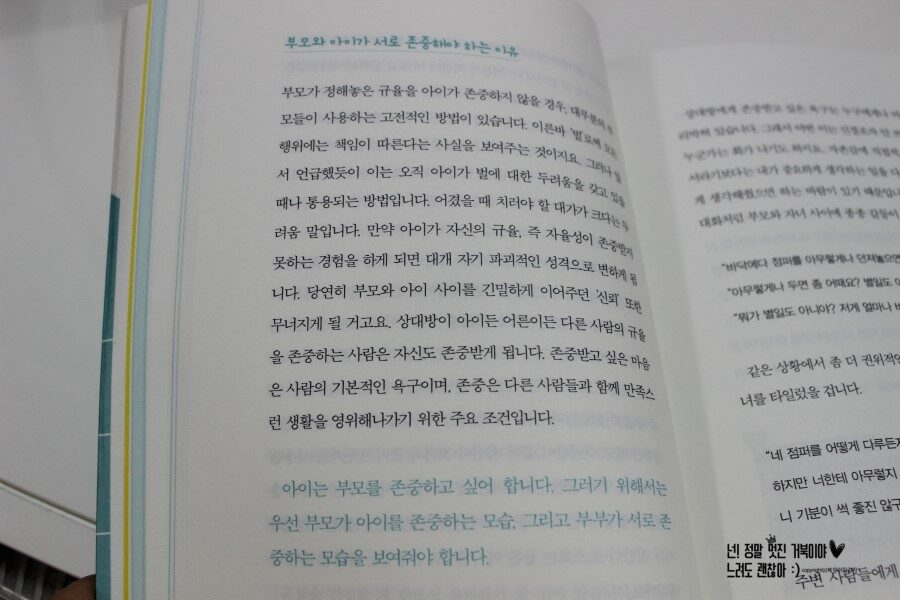 부모와 아이가 서로 존중해야 하는 이유
부모가 정해놓은 규율을 아이가 존중하지 않을 경우, 대부분의 부
모들이 사용하는 고전적인 방법이 있습니다. 이른바 '벌'로써 모든
행위에는 책임이 따른다는 사실을 보여주는 것이지요. 그러나 앞
서 언급했듯이 이는 오직 아이가 벌에 대한 두려움을 갖고 있을
때나 통용되는 방법입니다. 어겼을 때 치러야 할 대가가 크다는 두
려움 말입니다. 만약 아이가 자신의 규율, 즉 자율성이 존중받지
못하는 경험을 하게 되면 대개 자기 파괴적인 성격으로 변하게 됩
니다. 당연히 부모와 아이 사이를 긴밀하게 이어주던 '신뢰' 또한
무너지게 될 거고요. 상대방이 아이든 어른이든 다른 사람의 규율
을 존중하는 사람은 자신도 존중받게 됩니다. 존중받고 싶은 마음
은 사람의 기본적인 욕구이며, 존중은 다른 사람들과 함께 만족스
런 생활을 영위해나가기 위한 주요 조건입니다.
아이는 부모를 존중하고 싶어 합니다. 그러기 위해서는
우선 부모가 아이를 존중하는 모습, 그리고 부부가 서로 존
중하는 모습을 보여줘야 합니다.
상대방에게 존중받고 싶은 욕구는 누구에게나
리박혀 있습니다. 그래서 어떤 이는
누군가는 화가 나기도 하지요. 자존감에
사라기보다는 내가 중요하게 생각하는 일을
게 생각해줬으면 하는 바람이 있기 때문입니
대화처럼 부모와 자녀 사이에 종종 갈등이
"바닥에다 점퍼를 아무렇게나 던져놓으면
"아무렇게나 두면 좀 어때요? 별일도
"뭐가 별일도 아니야? 저게 얼마나
같은 상황에서 좀 더 권위적인
녀를 타일렀을 겁니다.
"네 점퍼를 어떻게 다루든지
하지만 너한테 아무렇지
니 기분이 썩 좋진 않구
주변 사람들에게
넌! 정말 멋진 거북이야
느려도 괜찮아 :)